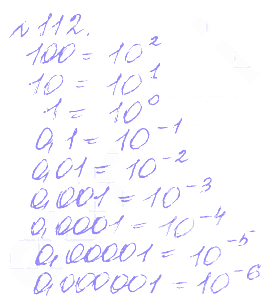 №112.
100 = 10²
10 = 10¹
1 = 10⁰
0,1 = 10⁻¹
0,01 = 10⁻²
0,001 = 10⁻³
0,0001 = 10⁻⁴
0,00001 = 10⁻⁵
0,000001 = 10⁻⁶